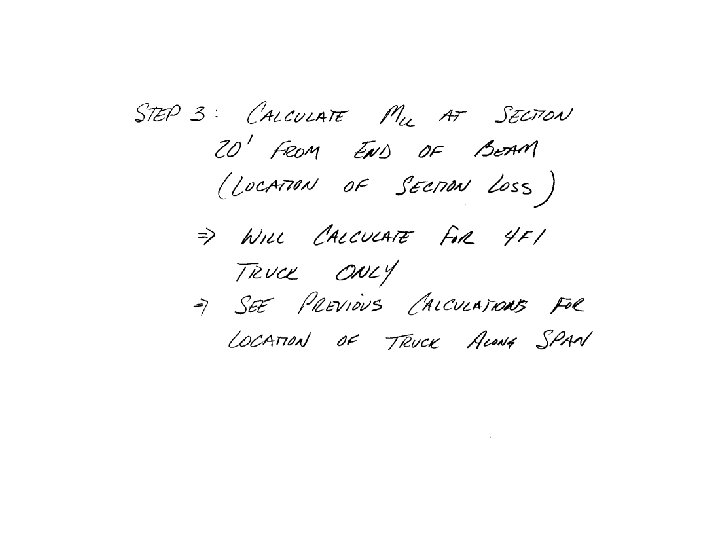 STEP 3: CALCULATE MLL AT SECTION
20' FROM END OF BEAM
(LOCATION OF SECTION LOSS)
⇒ WILL CALCULATE FOR 4F1
TRUCK ONLY
⇒ SEE PREVIOUS CALCULATIONS FOR
LOCATION OF TRUCK ALONG SPAN